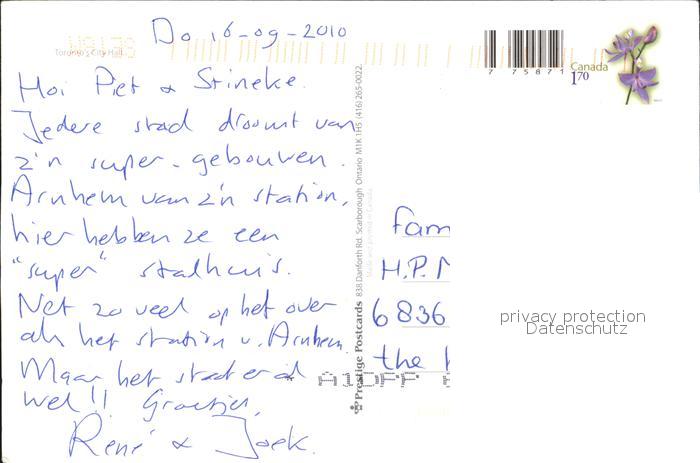 Do 16-09-2010
Toronto's City Hall
Hoi Piet & Stineke.
Iedere stad droomt van
z'n super-gebouwen.
Arnhem van z'n station,
hier hebben ze een
"super" stadhuis.
Net zo veel op het over
als het station v. Arnhem
Maar het staat er al
wel!! Groetjes,
René & Joek.
Prestige Postcards 838 Danforth Rd. Scarborough Ontario M1K 1H5 (416) 265-0022
7 75871
Canada
1.70
fam
H.P.
6836
the
privacy protection
Datenschutz